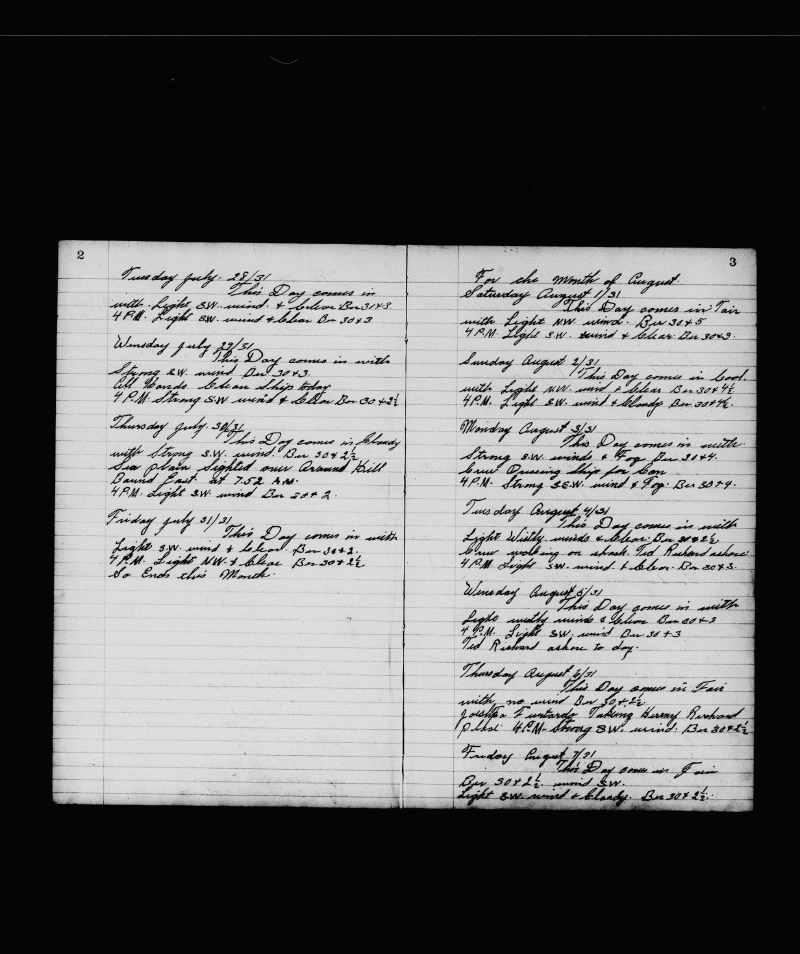 2
Tuesday July. 28/31
This Day comes in
with Light S.W. wind. & Clear Bar 30+3.
4 P.M. Light S.W. wind & Clear Bar 30+3
Wensday July 29/31
This Day comes in with
Strong S.W. wind Bar 30+3.
All Hands Clean Ship today
4 P.M. Strong S.W. wind & Clear Bar 30+2½
Thursday July 30/31
This Day comes in Cloudy
with Strong S.W. wind. Bar 30+2½
Sea plain Sighted over Around Hill
Bound East. at 7.52 A.M.
4 P.M. Light S.W. wind Bar 30+2.
Friday July 31/31
This Day comes in with
Light S.W. wind & Clear. Bar 30+2.
4 P.M. Light NW. & Clear Bar 30+2½
So Ends this Month.
3
For the Month of August.
Saturday August 1/31
This Day comes in Fair
with Light NW. wind. Bar 30+5
4 P.M. Light S.W. wind & Clear. Bar 30+3.
Sunday August 2/31
This Day comes in Cool.
with Light NW. wind & Clear Bar 30+4½
4 P.M. Light S.W. wind & Cloudy Bar 30+4½.
Monday August 3/31
This Day comes in with
Strong S.W. winds & Fog Bar 30+4.
Crew Dressing Ship for
4 P.M. Strong S.S.W. wind & Fog. Bar 30+4.
Tuesday August 4/31
This Day comes in with
Light Westly winds & Clear. Bar 30+2½
Crew working on Ted Richard ashore
4 P.M. Light S.W. wind. & Clear. Bar 30+3.
Wensday August 5/31
This Day comes in with
Light westly winds & Clear Bar 30+3
4 P.M. Light S.W. wind Bar 30+3
Ted Richard ashore to day.
Thursday August 6/31
This Day comes in Fair
with no wind Bar 30+2½
Furtardo Taking Richard
4 P.M. Strong S.W. wind. Bar 30+2½
Friday August 7/31
This Day comes in Fair
Bar 30+2½ wind S.W.
Light S.W. wind & Cloudy. Bar 30+2½.